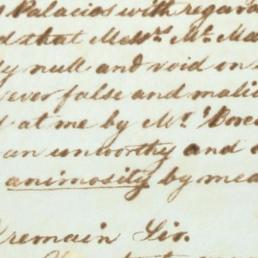 Palacios with regar
d that Messrs. Mc. Ma
ly null and void on
ever false and malic
d at me by Mr.
an unworthy and
animosity by mea
remain Sir.